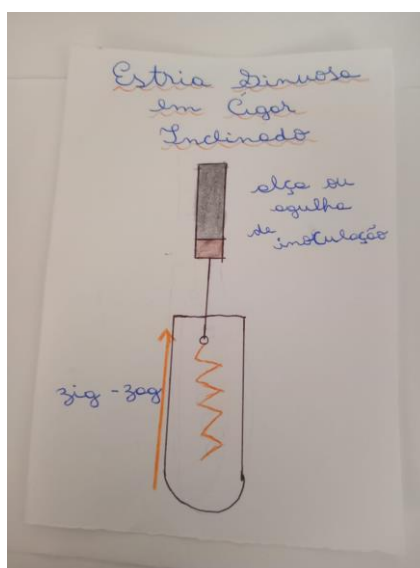 Estria Sinuosa
em Ágar
Inclinado
alça ou
agulha
de inoculação
zig-zag